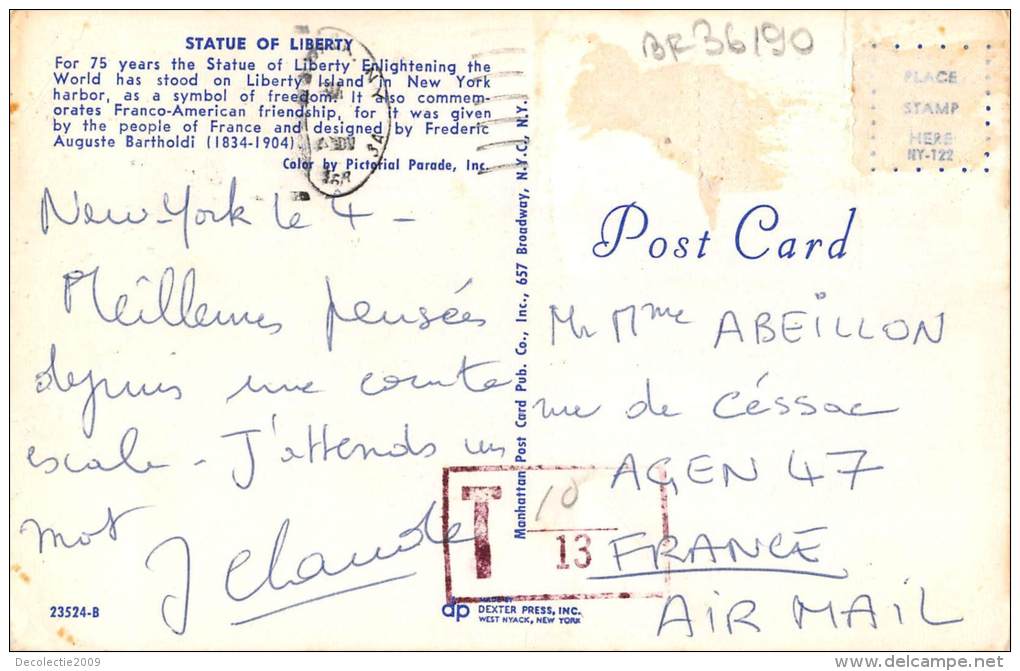 STATUE OF LIBERTY
For 75 years the Statue of Liberty Enlightening the
World has stood on Liberty Island in New York
harbor, as a symbol of freedom. It also commem-
orates Franco-American friendship, for it was given
by the people of France and designed by Frederic
Auguste Bartholdi (1834-1904).
Color by Pictorial Parade, Inc.
New-York le 4 -
Meilleures pensées
depuis une courte
escale - J'attends un
mot
J Claude
23524-B
Manhattan Post Card Pub. Co., Inc., 657 Broadway, N.Y.C., N.Y.
BF36190
PLACE
STAMP
HERE
NY-122
Post Card
Mr Mme ABEILLON
rue de Céssac
AGEN 47
FRANCE
AIR MAIL
T 10
13
dp MADE BY
DEXTER PRESS, INC.
WEST NYACK, NEW YORK
Decolectie2009
delcampe.net